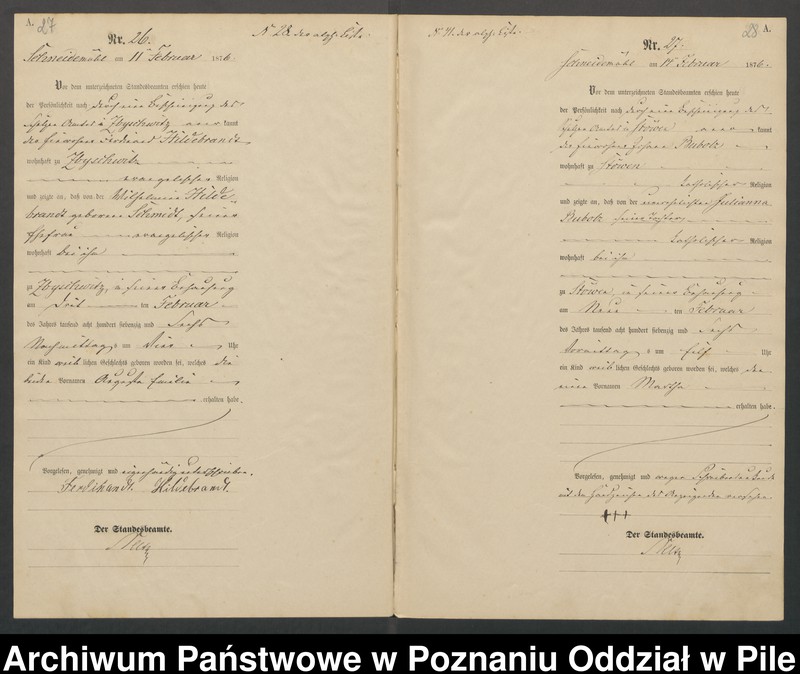 A. 27
Nr. 26.
Schneidemühl am 11 Februar 1876.
Vor dem unterzeichneten Standesbeamten erschien heute
der Persönlichkeit nach durch eine Bescheinigung des
kannt
Ferdinand Hildebrandt
wohnhaft zu Zbyschewitz
evangelischer Religion
und zeigte an, daß von der Wilhelmine Hilde-
brandt geborenen Schmidt, seiner
Ehefrau evangelischer Religion
wohnhaft bei ihm
zu Zbyschewitz, in seiner Behausung
am Drei ten Februar
des Jahres tausend acht hundert siebenzig und Sechs
Nachmittags um Vier Uhr
ein Kind weiblichen Geschlechts geboren worden sei, welches die
beiden Vornamen Auguste Emilie
erhalten habe.
Vorgelesen, genehmigt und eigenhändig unterschrieben.
Ferdinandt Hildebrandt.
Der Standesbeamte.
28 A.
Nr. 27.
Schneidemühl am 11 Februar 1876.
Vor dem unterzeichneten Standesbeamten erschien heute
der Persönlichkeit nach durch eine Bescheinigung des
Stöwen kannt
Bubolz
wohnhaft zu Stöwen
katholischer Religion
und zeigte an, daß von der unverehelichten Julianna
Bubolz seine Tochter,
katholischer Religion
wohnhaft bei ihm
zu Stöwen, in seiner Behausung
am Neun ten Februar
des Jahres tausend acht hundert siebenzig und Sechs
Vormittags um Elf Uhr
ein Kind weiblichen Geschlechts geboren worden sei, welches den
einen Vornamen Martha
erhalten habe.
Vorgelesen, genehmigt und wegen Schreibensunkunde
mit den Handzeichen des Anzeigenden versehen.
+++
Der Standesbeamte.
Archiwum Państwowe w Poznaniu Oddział w Pile